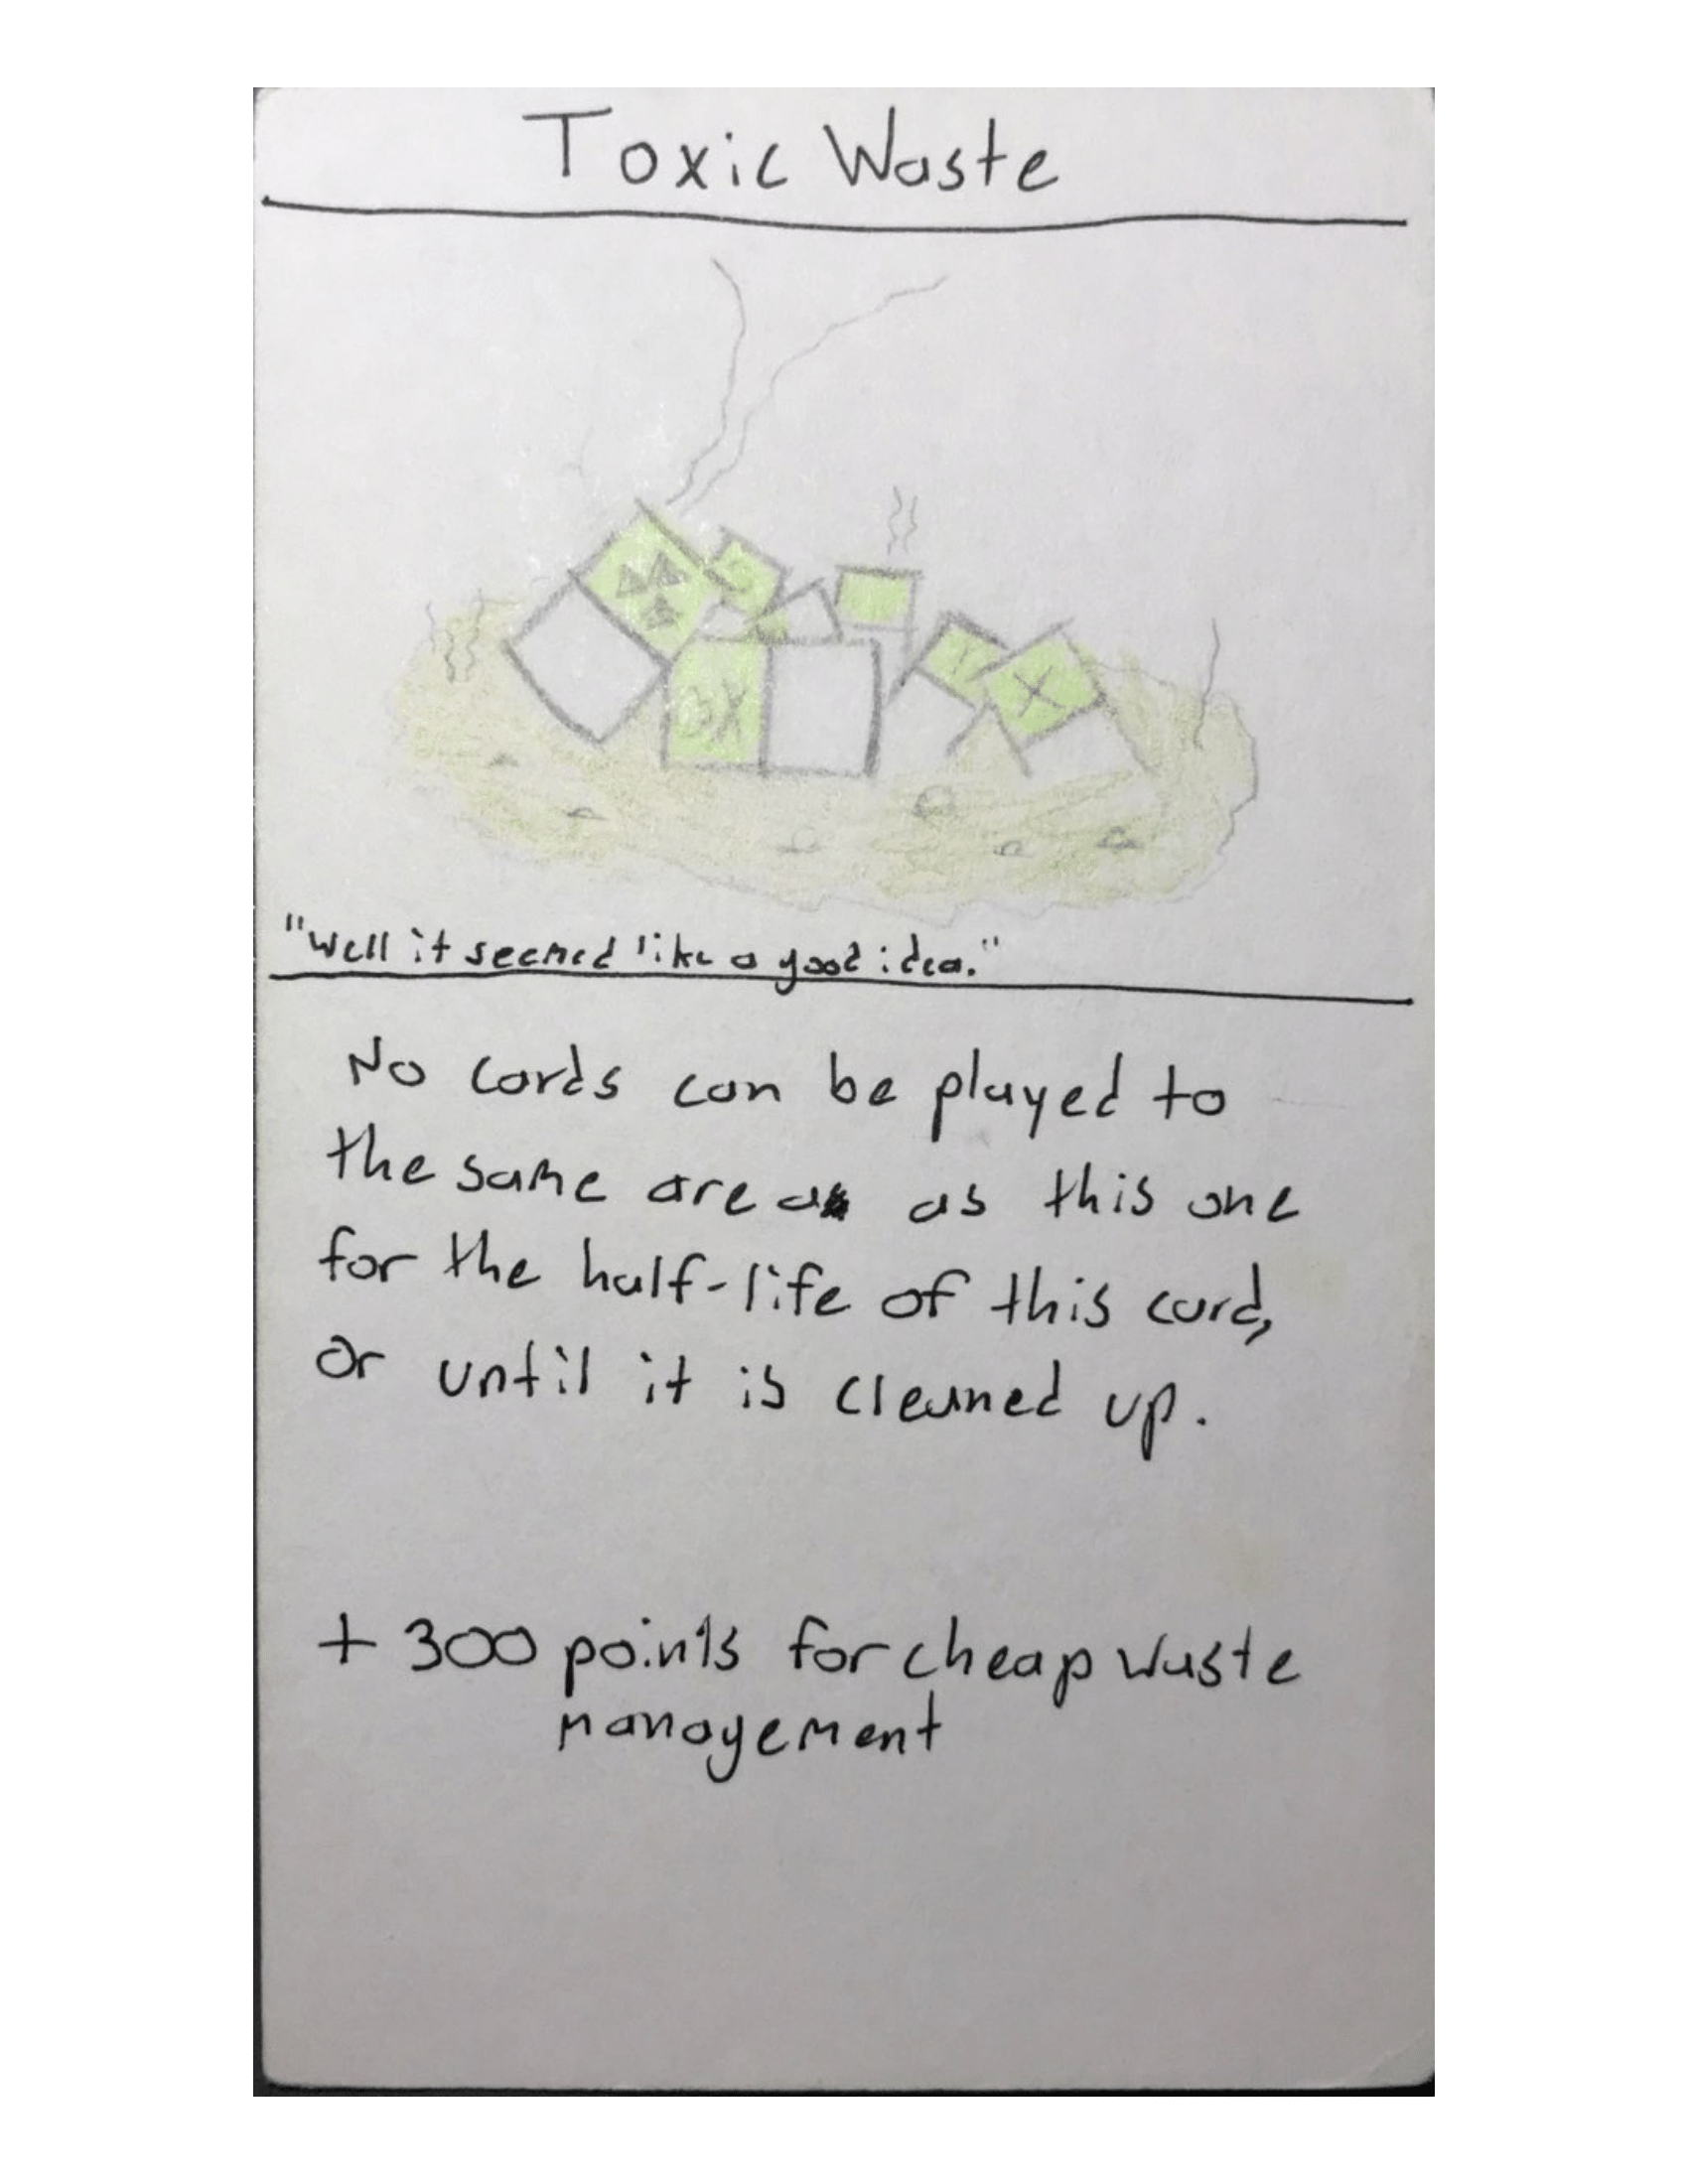 Toxic Waste
"Well it seemed like a good idea."
No cards can be played to
the same area as this one
for the half-life of this card,
or until it is cleaned up.
+ 300 points for cheap waste
management